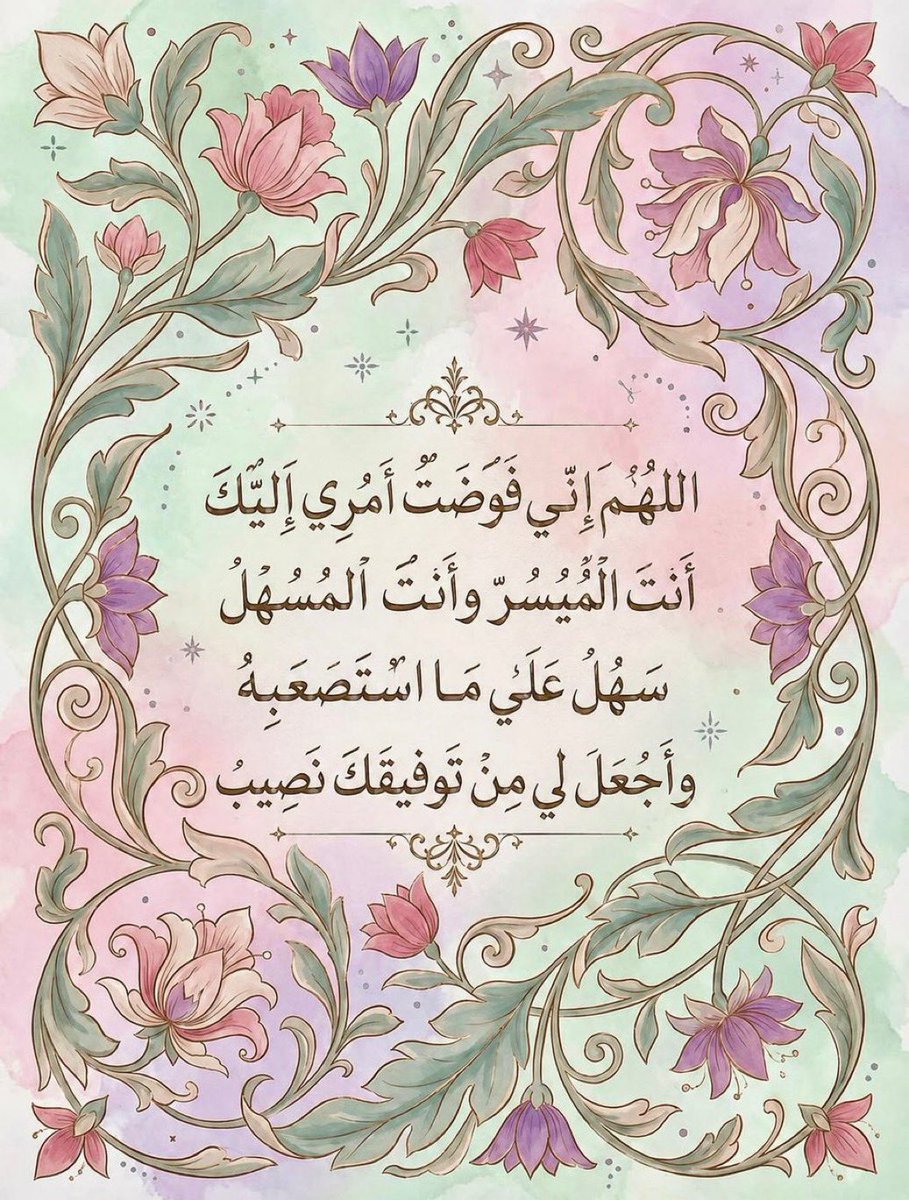 اللهُمَ إِنّي فَوَضَتُ أَمُرِي إِلَيّكَ
أَنتَ الْمُيُسُرّ وأَنتُ المُسُهْلُ
سَهُلُ عَلَيُ مَا اسْتَصَعَبِهُ
وأَجُعَلَ لي مِنْ تَوفيقَكَ نَصِيبُ